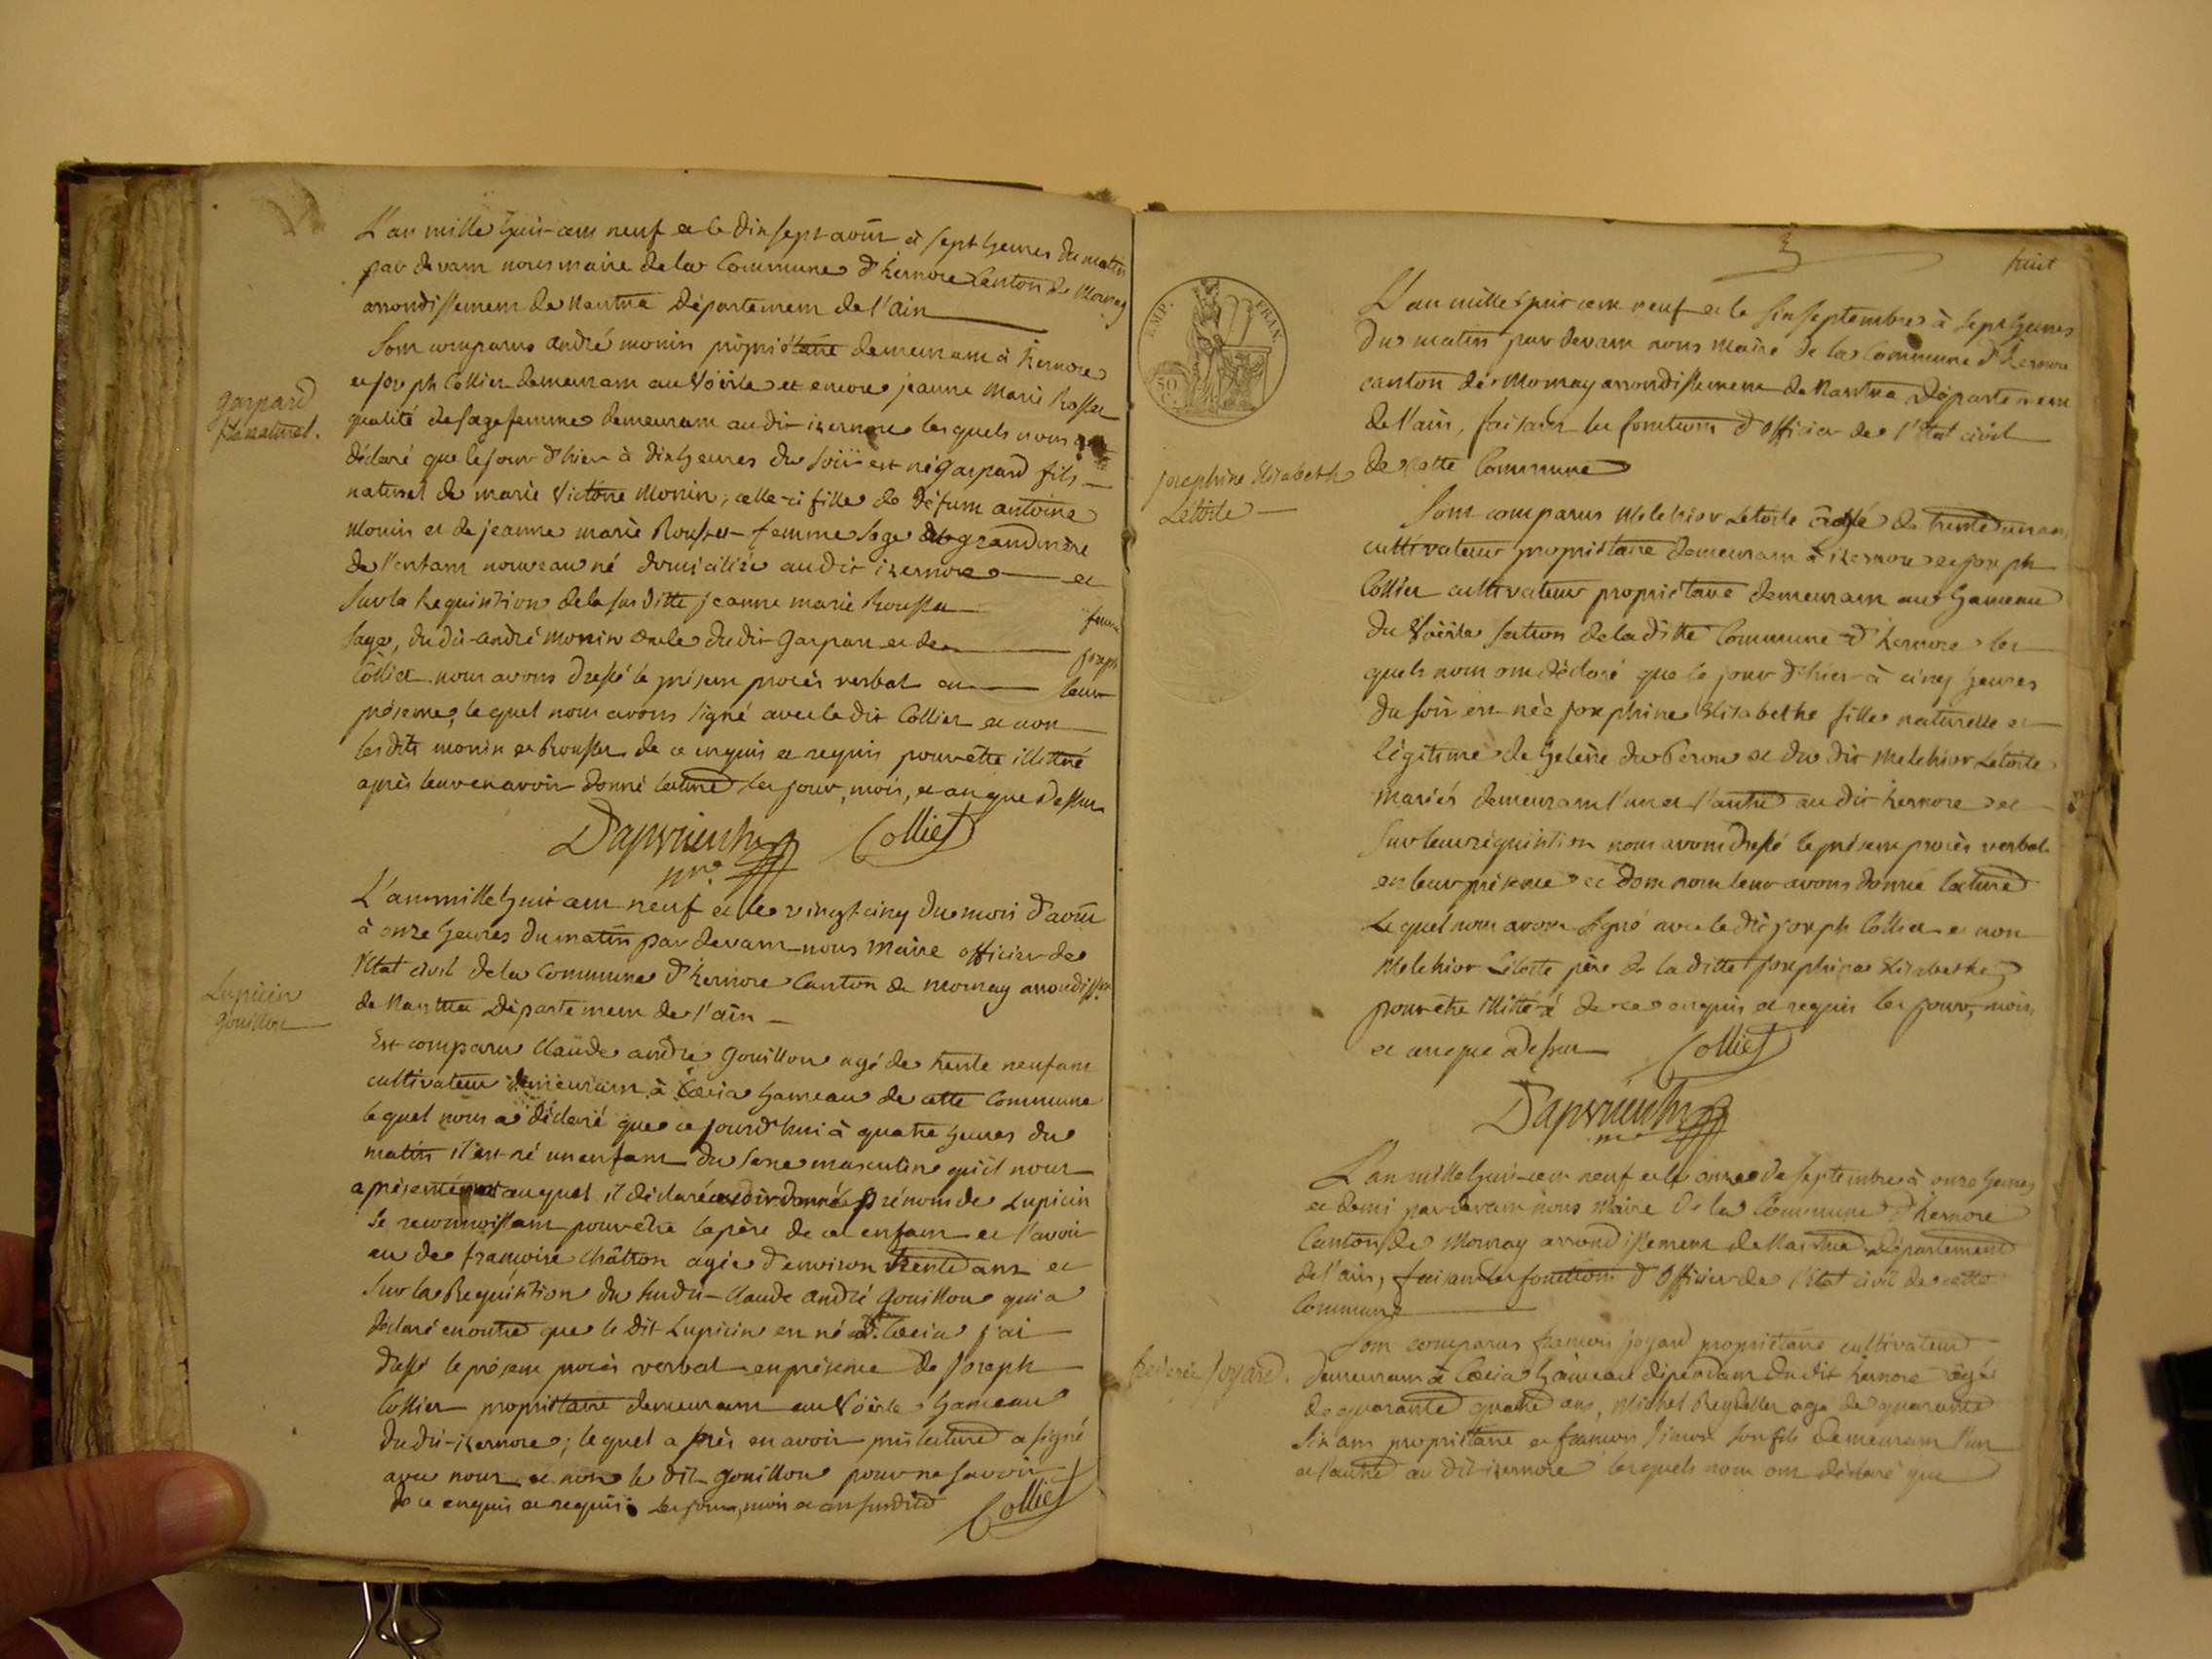 L'an mille huit cent neuf et le dix sept août à sept heures du matin
par devant nous maire de la Commune d'Izernore Canton de Mornay
arrondissement de Nantua Département de l'ain
Sont comparus andré monin propriétaire demeurant à Izernore
et joseph Collier demeurant au Voërle et encore jeanne Marie Rosset
gaspard
fils naturel.
qualité de sage femme demeurant audit izernore lesquels nous ont
déclaré que le jour d'hier à dix heures du soir est né gaspard fils
naturel de marie Victoire Monin, celle-ci fille de défunt antoine
Monin et de jeanne marie Rousset femme sage et grandmère
de l'enfant nouveau né domiciliée audit izernore et
sur la Requisition de la susditte jeanne marie Rousset femme
sage, du dit andré Monin oncle dudit Gaspard et de joseph
Collier nous avons dressé le présent procès verbal en leur
présence, lequel nous avons signé avec le dit Collier et non
lesdits monin et Rousset de ce enquis et requis pour être illittré
après leur en avoir donné lecture les jour, mois, et an que dessus
Collier
L'an mille huit cent neuf et le vingt cinq du mois d'août
à onze heures du matin par devant nous Maire officier de
l'état civil de la Commune d'Izernore Canton de mornay arrondissem.
Lupicin
Gouillon
de Nantua Département de l'ain
Est comparu Claude andré Gouillon agé de trente neuf ans
cultivateur demeurant à Ceccia hameau de cette Commune
lequel nous a déclaré que cejourd'hui à quatre heures du
matin il est né un enfant du sexe masculin qu'il nous
a présenté et auquel il déclaré avoir donné le prénom de Lupicin
se reconnoissant pour être le père de cet enfant et l'avoir
eu de françoise Châtron agée d'environ trente ans et
sur la Requisition du susdit Claude André Gouillon qui a
déclaré en outre que le dit Lupicin est né à Ceccia j'ai
dressé le présent procès verbal en présence de Joseph
Collier propriétaire demeurant au Voërle hameau
dudit izernore; lequel après en avoir pris lecture a signé
avec nous et non le dit Gouillon pour ne savoir
de ce enquis et requis les jour, mois et an susdits
Collier
huit
EMP. FRAN.
50 C.
L'an mille huit cent neuf et le six septembre à sept heures
du matin par devant nous Maire de la Commune d'Izernore
canton de Mornay arrondissement de Nantua Département
de l'ain, faisant les fonctions d'officier de l'état civil
Josephine Elisabeth
Létoile
de cette Commune
Sont comparus Melchior Létoile âgé de trente un an
cultivateur propriétaire demeurant à izernore et joseph
Collier cultivateur propriétaire demeurant au hameau
du Voërle section de la ditte Commune d'Izernore les
quels nous ont déclaré que le jour d'hier à cinq heures
du soir est née josephine Elisabethe fille naturelle et
légitime de helène du Perou et du dit Melchior Letoile
mariés demeurant l'un et l'autre audit Izernore et
sur leur réquisition nous avons dressé le présent procès verbal
en leur présence et dont nous leur avons donné lecture
Lequel nous avons signé avec le dit joseph Collier et non
Melchior Létoile père de la ditte Josephine Elisabethe
pour être illittré de ce enquis et requis les jour, mois
et an que dessus Collier
L'an mille huit cent neuf et le onze de septembre à onze heures
et demi pardevant nous Maire de la Commune d'Izernore
Canton de Mornay arrondissement de Nantua département
de l'ain, faisant les fonctions d'officier de l'état civil de cette
Commune
Sont comparus françois joyard propriétaire cultivateur
Joyard.
demeurant à Ceccia hameau dépendant dudit Izernore âgé
de quarante quatre ans, Michel Reydellet agé de quarante
six ans propriétaire et françois Simon son fils demeurant l'un
et l'autre au dit izernore lesquels nous ont déclaré que